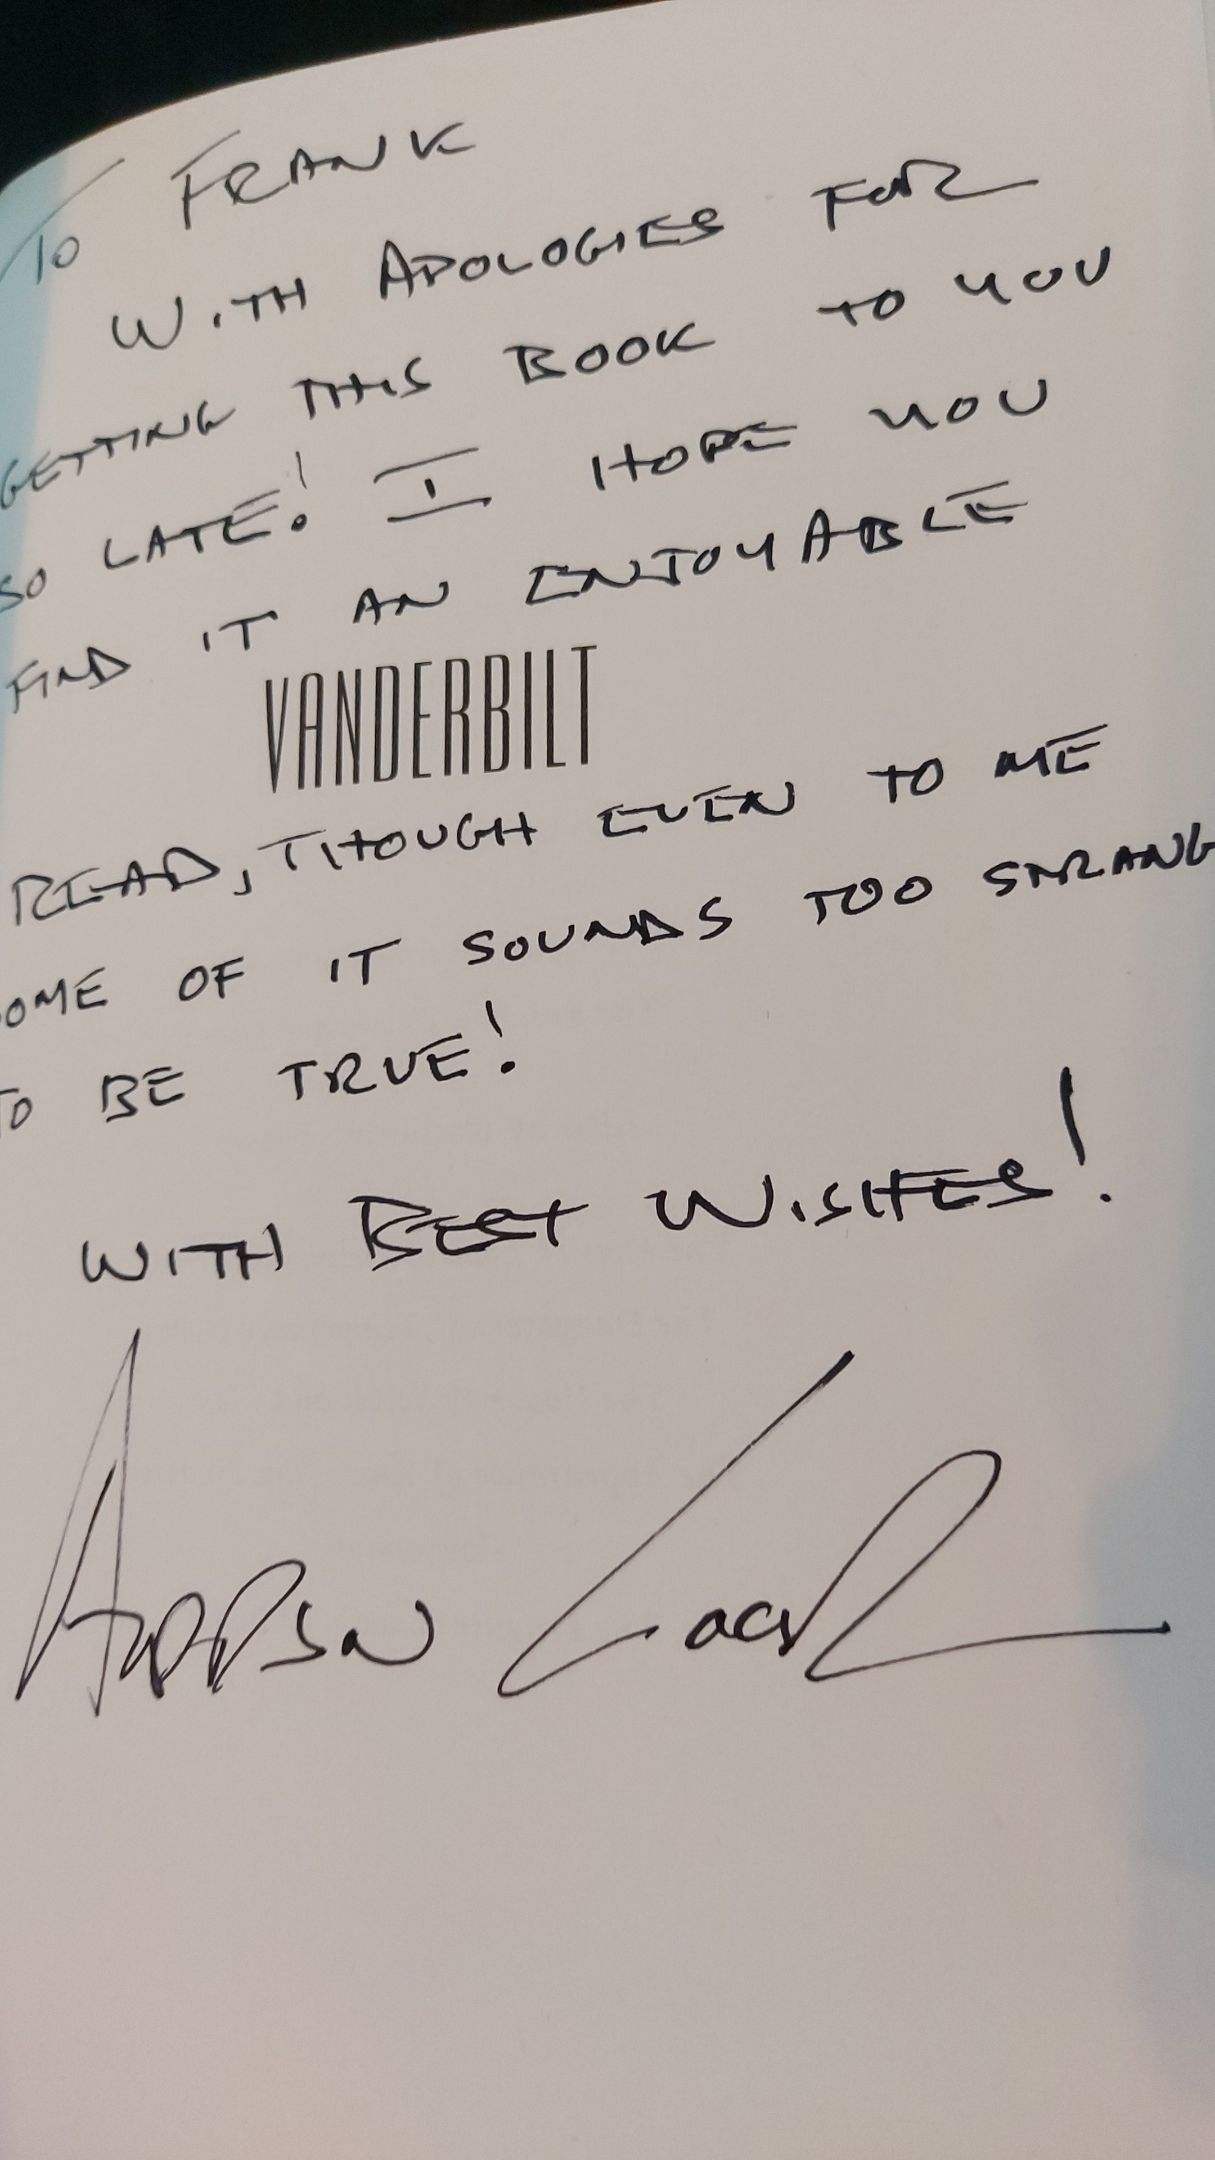 To FRANK
WITH APOLOGIES FOR
GETTING THIS BOOK TO YOU
SO LATE! I HOPE YOU
FIND IT AN ENJOYABLE
VANDERBILT
READ, THOUGH EVEN TO ME
OME OF IT SOUNDS TOO STRANG
TO BE TRUE!
WITH BEST WISHES!